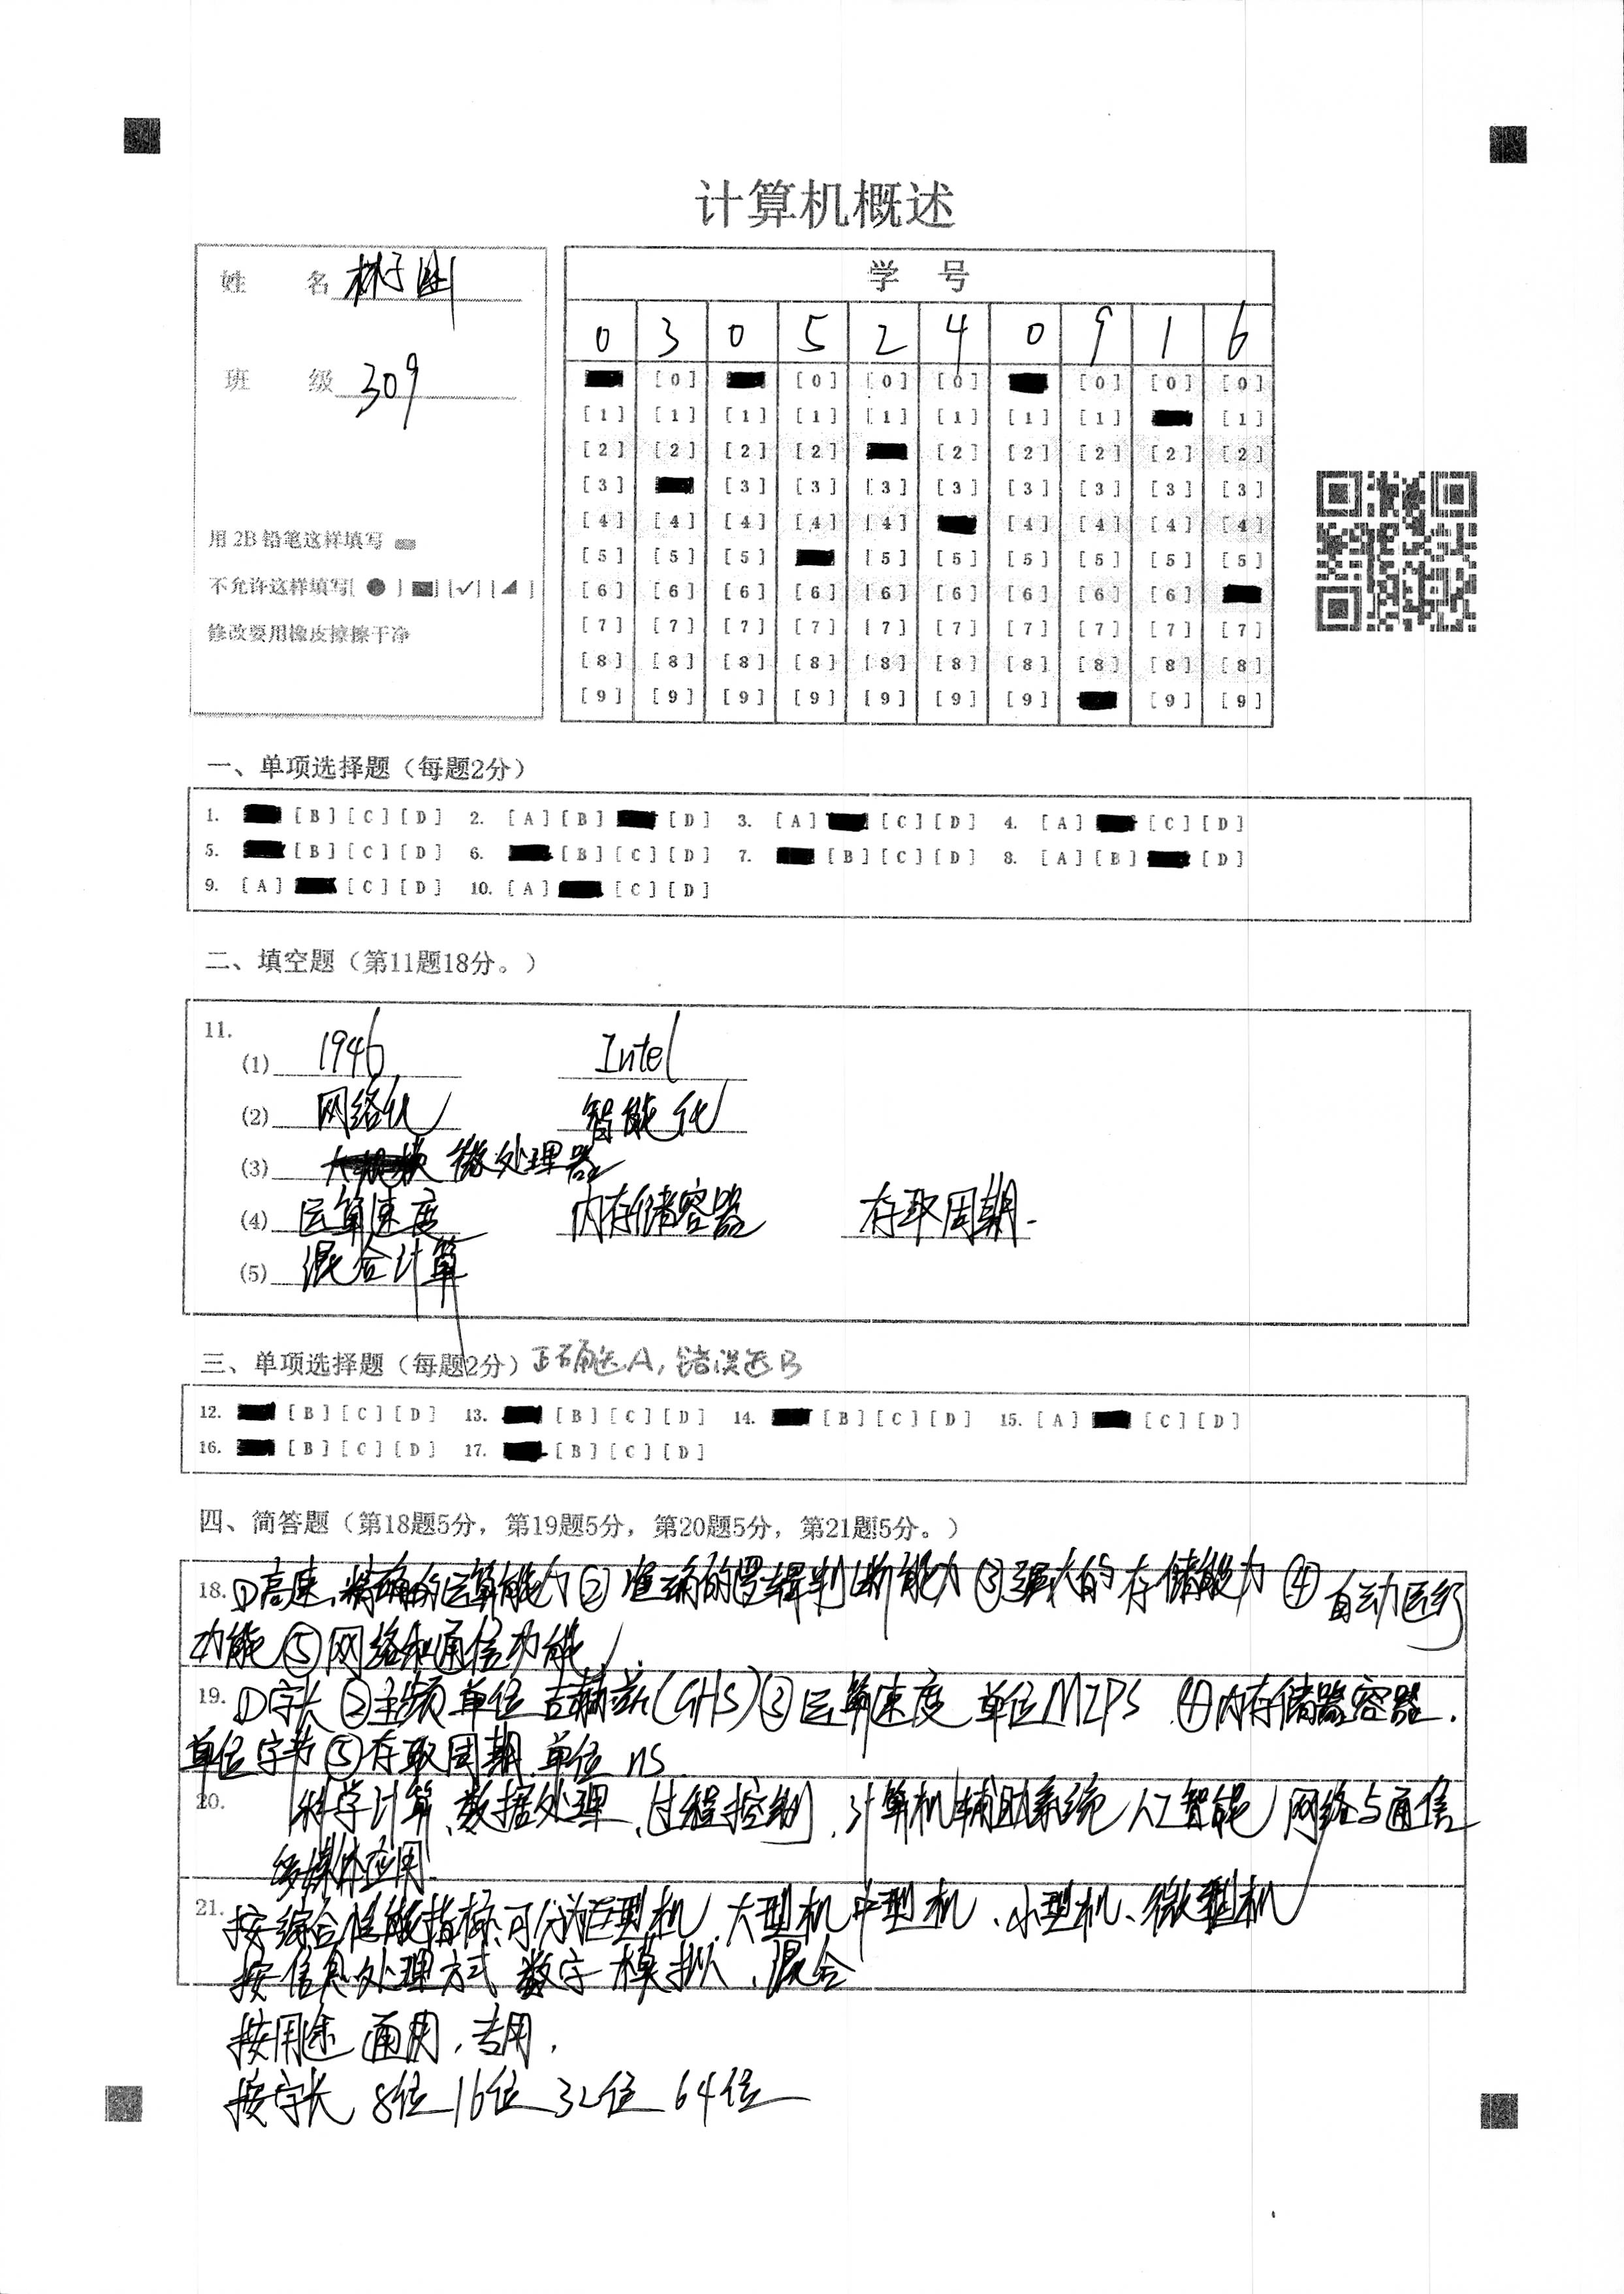 计算机概述
姓 名 林子
班 级 309
用 2B 铅笔这样填写
不允许这样填写[ ● ] [■] [✓] [◢ ]
修改要用橡皮擦擦干净
学 号
0 3 0 5 2 4 0 9 1 6
[0] [0] [0] [0] [0] [0] [0]
[1] [1] [1] [1] [1] [1] [1] [1] [1]
[2] [2] [2] [2] [2] [2] [2] [2] [2]
[3] [3] [3] [3] [3] [3] [3] [3] [3]
[4] [4] [4] [4] [4] [4] [4] [4] [4]
[5] [5] [5] [5] [5] [5] [5] [5] [5]
[6] [6] [6] [6] [6] [6] [6] [6] [6]
[7] [7] [7] [7] [7] [7] [7] [7] [7] [7]
[8] [8] [8] [8] [8] [8] [8] [8] [8] [8]
[9] [9] [9] [9] [9] [9] [9] [9] [9]
一、单项选择题（每题2分）
1. [B] [C] [D] 2. [A] [B] [D] 3. [A] [C] [D] 4. [A] [C] [D]
5. [B] [C] [D] 6. [B] [C] [D] 7. [B] [C] [D] 8. [A] [B] [D]
9. [A] [C] [D] 10. [A] [C] [D]
二、填空题（第11题18分。）
11.
(1) 1946 Intel
(2) 网络化 智能化
(3) 微处理器
(4) 运算速度 内存储容器 存取周期.
(5) 混合计算
三、单项选择题（每题2分）正确选A, 错误选B
12. [B] [C] [D] 13. [B] [C] [D] 14. [B] [C] [D] 15. [A] [C] [D]
16. [B] [C] [D] 17. [B] [C] [D]
四、简答题（第18题5分，第19题5分，第20题5分，第21题5分。）
18. ①高速、精确的运算能力② 准确的逻辑判断能力 ③强大的存储能力 ④ 自动运行
功能 ⑤网络和通信功能
19. ①字长 ②主频 单位 吉赫兹(GHS) ③运算速度 单位MIPS ④内存储器容器.
单位字节 ⑤存取周期 单位 ns
20. 科学计算、数据处理、过程控制、计算机辅助系统 人工智能 网络与通信
多媒体应用
21. 按综合性能指标可分为巨型机、大型机 中型机、小型机、微型机
按信息处理方式 数字 模拟、混合
按用途 通用、专用.
按字长 8位 16位 32位 64位